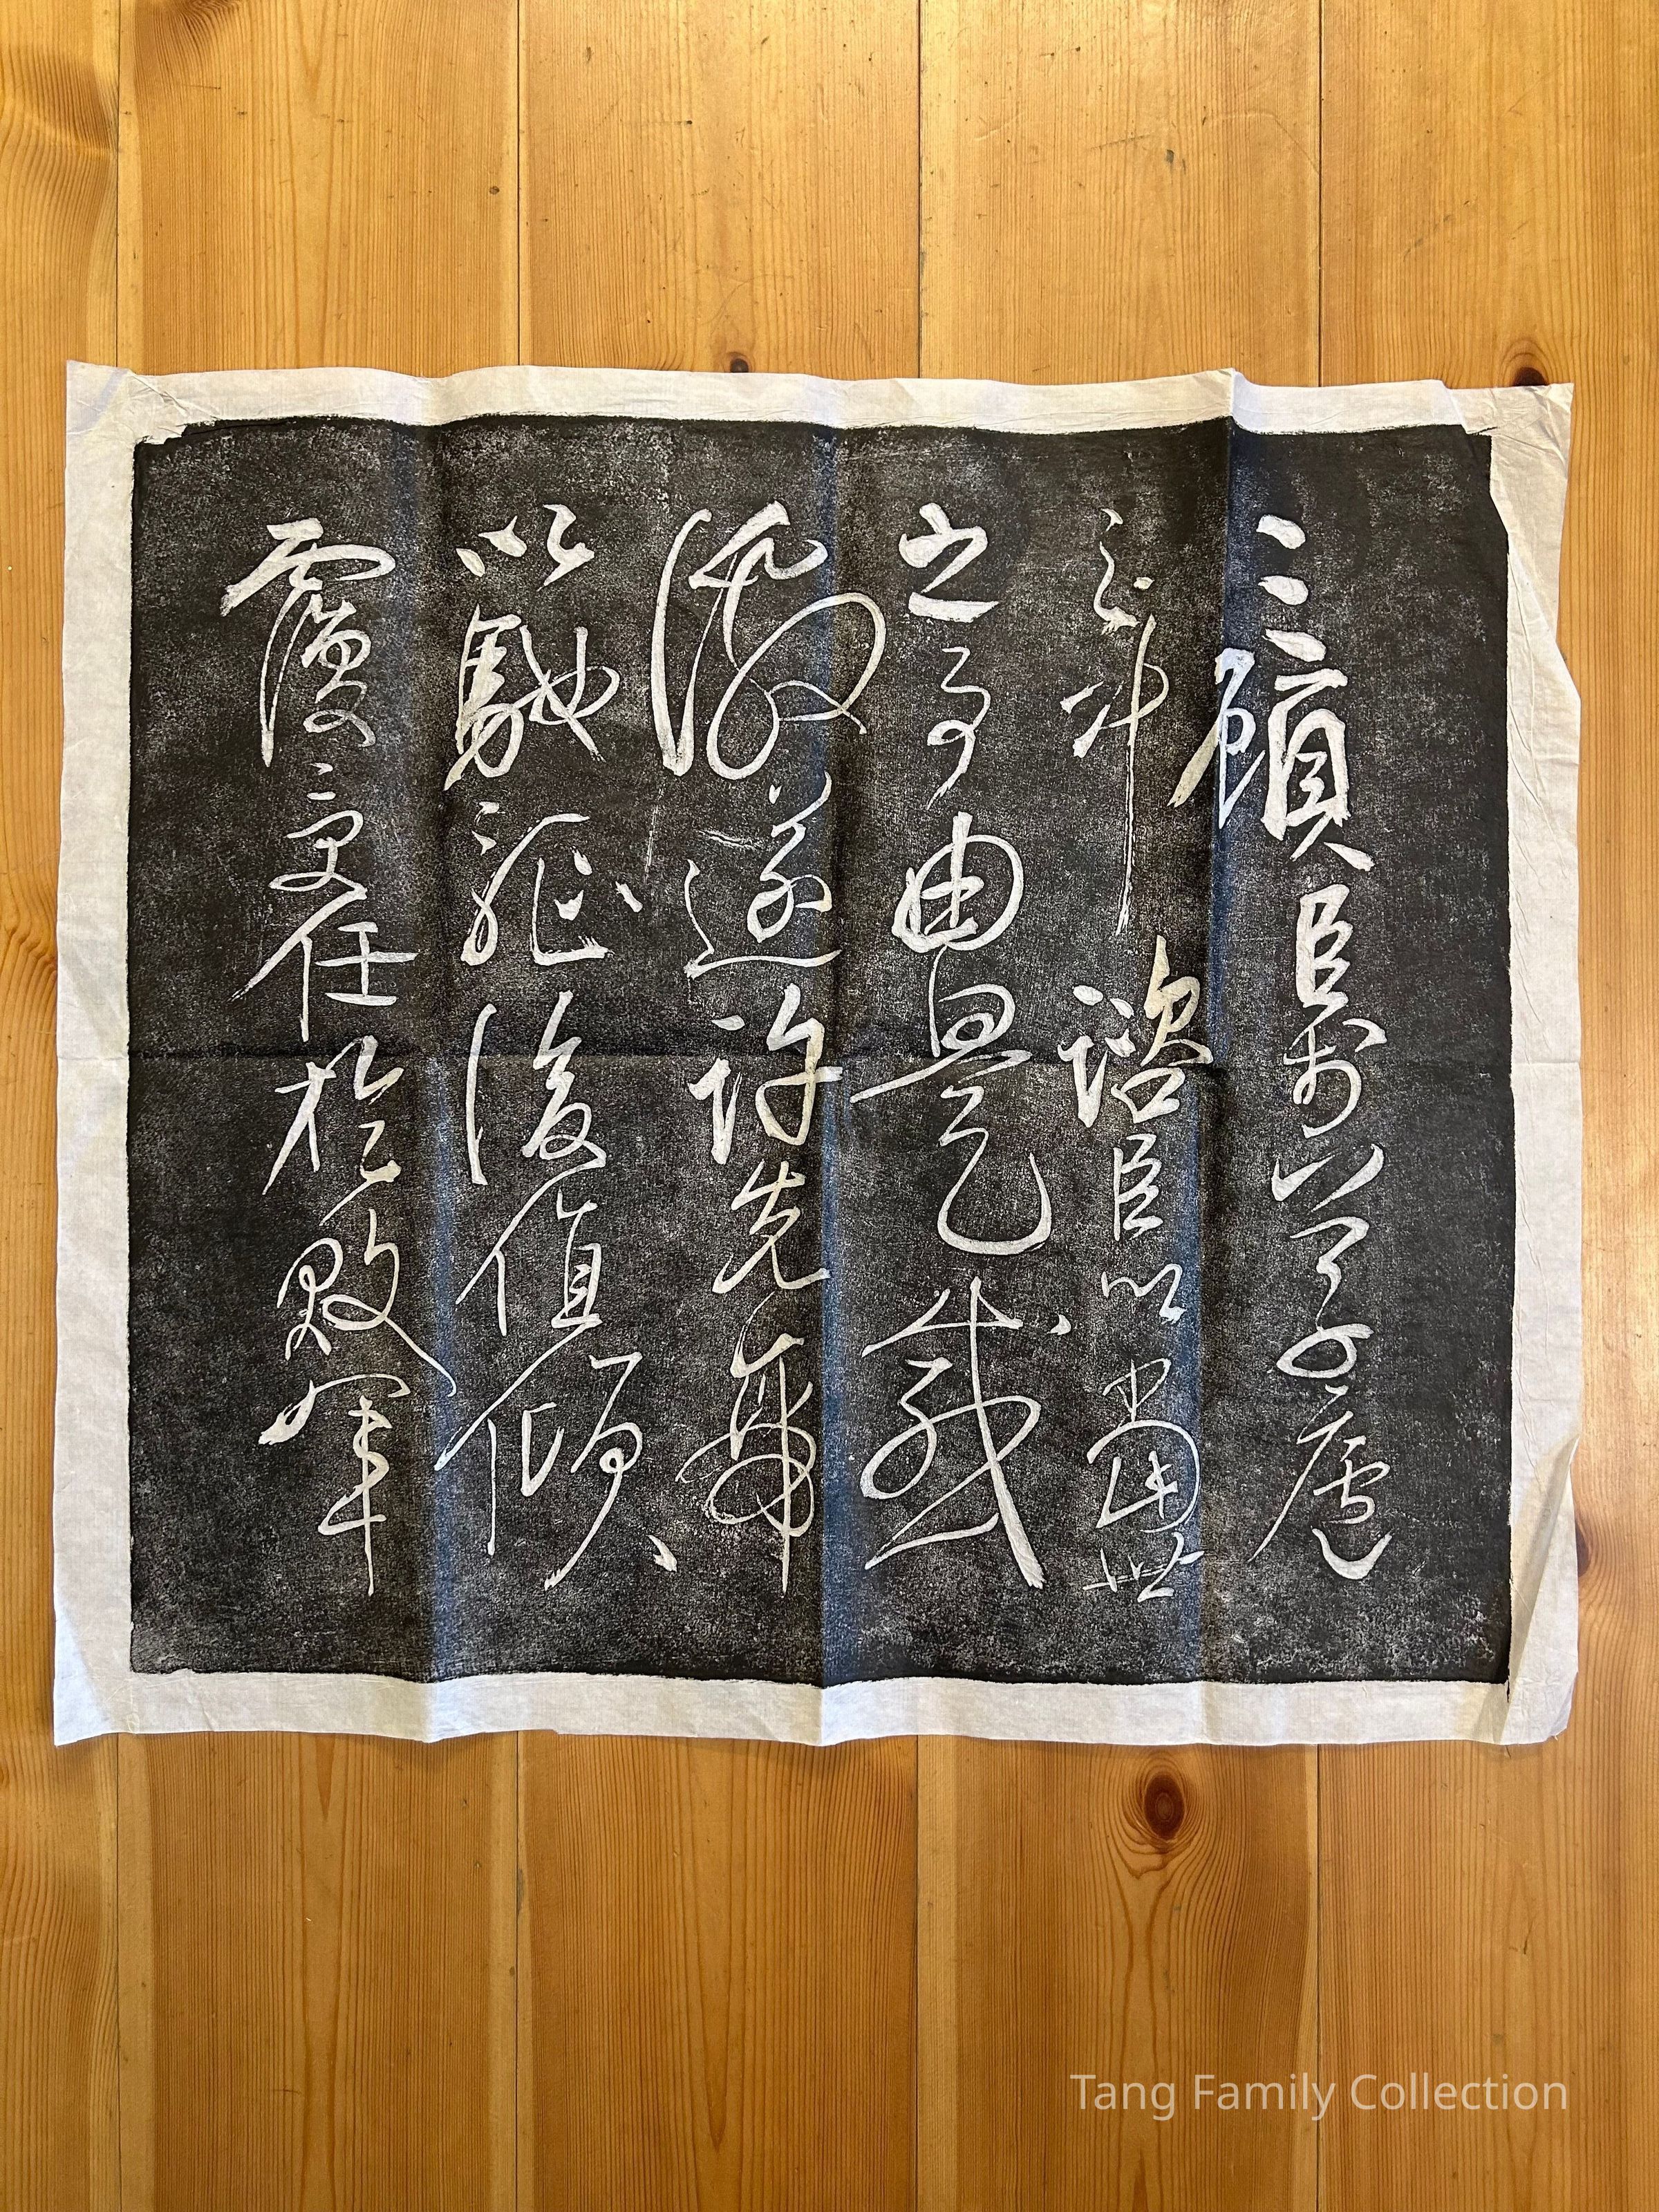 三顧臣於草廬
之中諮臣以當世
之事由是感
激遂許先帝
以馳驅後值傾
覆受任於敗軍
Tang Family Collection